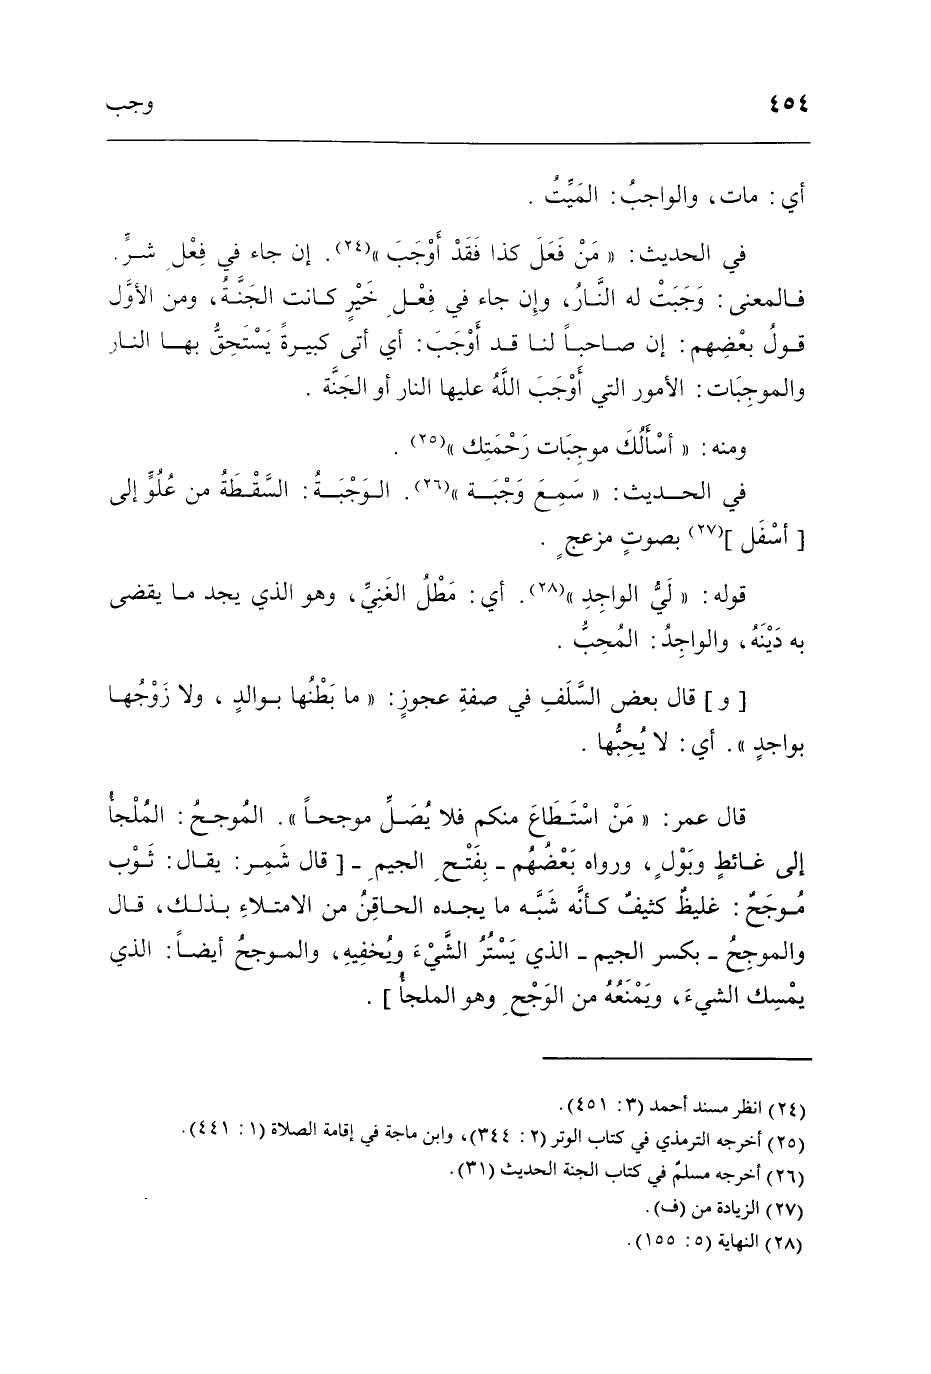 ٤٥٤
وجب
أي : مات ، والواجبُ : المَيِّتُ .
في الحديث : « مَنْ فَعَلَ كذا فَقَدْ أَوْجَبَ »(٢٤). إن جاء في فِعْلِ شـرٍّ.
فـالمعنى : وَجَبَتْ له النَّارُ، وإن جاء في فِعْـلِ خَيْرٍ كـانت الجَنَّـةُ، ومن الأوَّل
قـولُ بعْضِهم : إن صـاحبـاً لنـا قـد أَوْجَبَ : أي أتى كبيـرةً يَسْتَحِقُّ بهـا النـار
والموجِبَات : الأمور التي أَوْجَبَ اللَّهُ عليها النار أو الجَنَّة .
ومنه : « أسْأَلُكَ موجِبَات رَحْمَتِك »(٢٥) .
في الحـديث : « سَمِـعَ وَجْبَـة »(٢٦). الـوَجْبَـةُ : السَّقْـطَةُ من عُلُوٍّ إلى
[ أسْفَل ](٢٧) بصوتٍ مزعجٍ .
قوله : « لَيُّ الواجِدِ »(٢٨). أي : مَطْلُ الغَنِيِّ، وهو الذي يجد مـا يقضى
به دَيْنَهُ، والواجِدُ : المُحِبُّ .
[ و ] قال بعض السَّلَفِ في صفةِ عجوزٍ : « ما بَطْنُها بـوالدٍ ، ولا زَوْجُهـا
بواجدٍ ». أي : لا يُحِبُّها .
قال عمر : « مَنْ اسْتَـطَاعَ منكم فلا يُصَـلِّ موجحـاً ». المُوجـحُ : المُلْجأُ
إلى غـائطٍ وبَوْلٍ، ورواه بَعْضُهُم ـ بِفَتْـحِ الجيم ـ [ قال شَمِـر : يقـال : ثَـوْب
مُـوجَحٌ : غليظٌ كثيفٌ كـأنَّه شَبَّـه ما يجـده الحـاقِنُ من الامتـلاءِ بـذلـك، قـال
والموجِحُ ـ بكسر الجيم ـ الذي يَسْتُرُ الشَّيْءَ ويُخفِيهِ، والمـوجحُ أيضـاً : الذي
يمْسِك الشيءَ، ويَمْنَعُهُ من الوَجْحِ وهو الملجأُ ] .
(٢٤) انظر مسند أحمد (٣ : ٤٥١).
(٢٥) أخرجه الترمذي في كتاب الوتر (٢ : ٣٤٤)، وابن ماجة في إقامة الصلاة (١ : ٤٤١).
(٢٦) أخرجه مسلمٌ في كتاب الجنة الحديث (٣١).
(٢٧) الزيادة من (ف).
(٢٨) النهاية (٥ : ١٥٥).